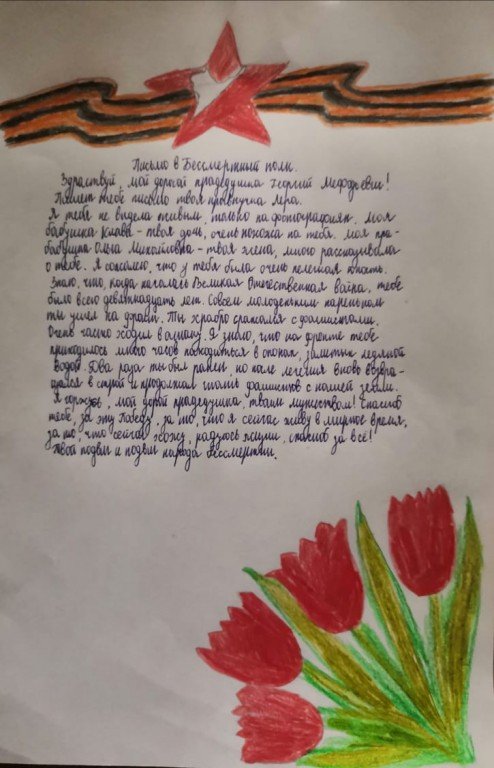 Письмо в Бессмертный полк.
Здраствуй, мой дорогой прадедушка Георгий Мефодьевич!
Пишет тебе письмо твоя правнучка Лера.
Я тебя не видела живым, только на фотографиях. Моя
бабушка Клава - твоя дочь, очень похожа на тебя. Моя пра-
бабушка Ольга Михайловна - твоя жена, много рассказывала
о тебе. Я сожалею, что у тебя была очень нелегкая юность.
Знаю, что, когда началась Великая Отечественная война, тебе
было всего девятнадцать лет. Совсем молоденьким пареньком
ты ушел на фронт. Ты храбро сражался с фашистами.
Очень часто ходил в атаку. Я знаю, что на фронте тебе
приходилось много часов находиться в окопах, залитых ледяной
водой. Два раза ты был ранен, но после лечения вновь возвра-
щался в строй и продолжал гнать фашистов с нашей земли.
Я горжусь, мой дорогой прадедушка, твоим мужеством! Спасибо
тебе, за эту Победу, за то, что я сейчас живу в мирное время,
за то, что сейчас хожу, радуюсь жизни, спасибо за всё!
Твой подвиг и подвиг народа бессмертны.